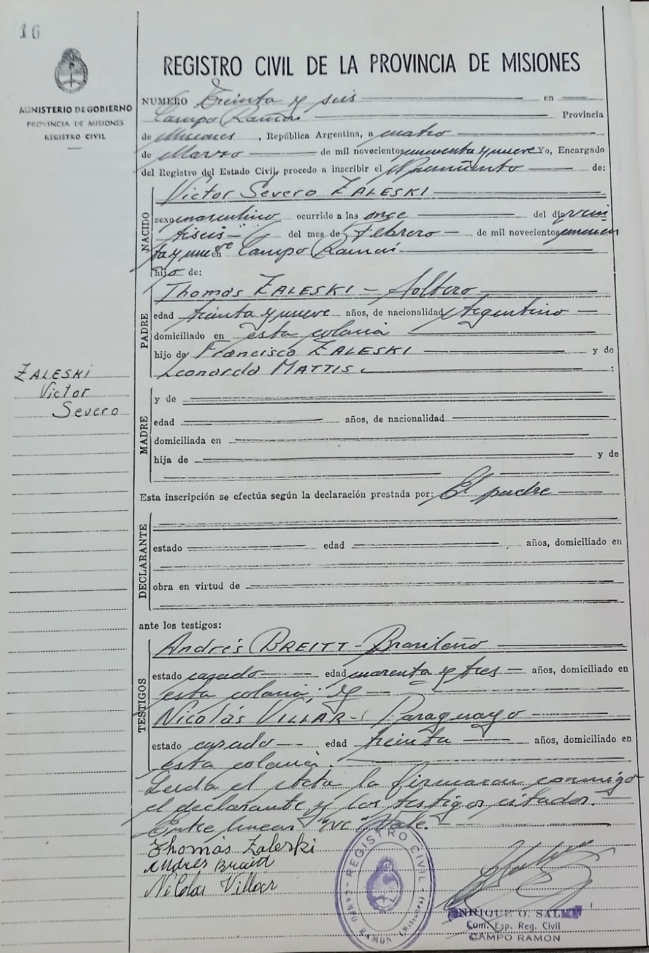 16
MINISTERIO DE GOBIERNO
PROVINCIA DE MISIONES
REGISTRO CIVIL
REGISTRO CIVIL DE LA PROVINCIA DE MISIONES
NUMERO Treinta y seis en
Campo Ramón Provincia
de Misiones, República Argentina, a cuatro
de Marzo de mil novecientos cincuenta y nueve Yo, Encargado
del Registro del Estado Civil, procedo a inscribir el Nacimiento de:
NACIDO
Victor Severo ZALESKI
sexo masculino ocurrido a las once del día vein
tiseis del mes de Febrero de mil novecientos cincuen
ta y nueve en Campo Ramón
hijo de:
PADRE
Thomas ZALESKI - Soltero
edad treinta y nueve años, de nacionalidad Argentino
domiciliado en esta colonia
hijo de Francisco ZALESKI y de
Leonarda MATTIS. :
ZALESKI
Victor
Severo
MADRE
y de
edad años, de nacionalidad
domiciliada en
hija de y de
Esta inscripción se efectúa según la declaración prestada por: El padre
DECLARANTE
estado edad años, domiciliado en
obra en virtud de
ante los testigos:
TESTIGOS
Andrés BREITT - Brasileño
estado casado edad cuarenta y tres años, domiciliado en
esta colonia; y
Nicolás VILLAR - Paraguayo
estado casado edad treinta años, domiciliado en
esta colonia.
Leída el Acta la firmaron conmigo
el declarante y los testigos citados.
Entre lineas "ve" Vale.
Thomas Zaleski
Andres
Nicolas Villar
REGISTRO CIVIL
CAMPO RAMON (MISIONES)
ENRIQUE O.
Com. Esp. Reg. Civil
CAMPO RAMON